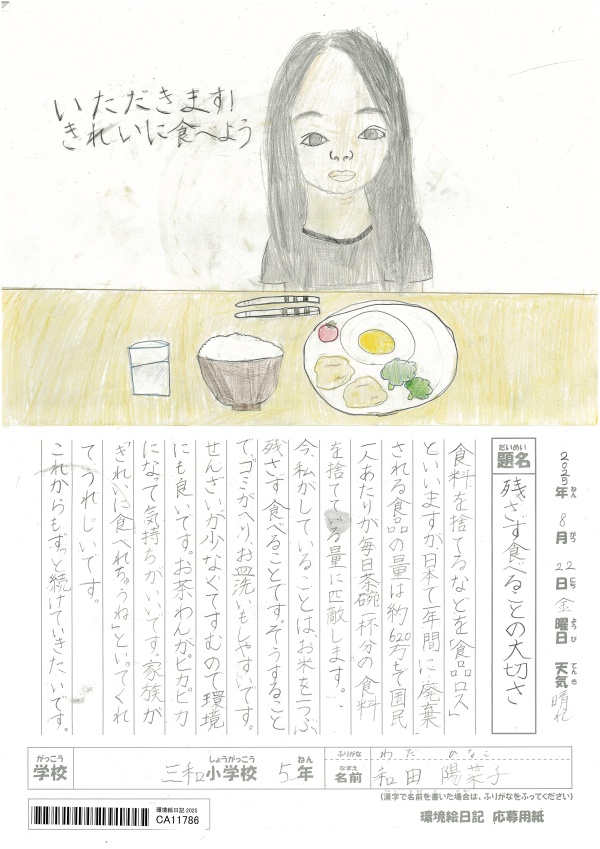 いただきます!
きれいに食べよう
2025年 8月 22日 金曜日 天気 晴れ
ねん がつ にち ようび てんき
だいめい
題名
残さず食べることの大切さ
食料を捨てるなどを「食品ロス」
といいますが、日本で一年間に廃棄
される食品の量は約620万tで国民
一人あたりが毎日茶碗一杯分の食料
を捨てている量に匹敵します。
今、私がしていることは、お米を一つぶ
残さず食べることです。そうすること
で、ゴミがへり、お皿洗いもしやすいです。
せんざいが少なくてすむので環境
にも良いです。お茶わんがピカピカ
になって気持ちがいいです。家族が
「きれいに食べれちゃうね」といってくれ
てうれしいです。
これからもずっと続けていきたいです。
がっこう
学校
しょうがっこう ねん
三和小学校 5年
ふりがな わだ ひなこ
なまえ
名前 和田 陽菜子
(漢字で名前を書いた場合は、ふりがなをふってください)
環境絵日記2025
CA11786
環境絵日記 応募用紙